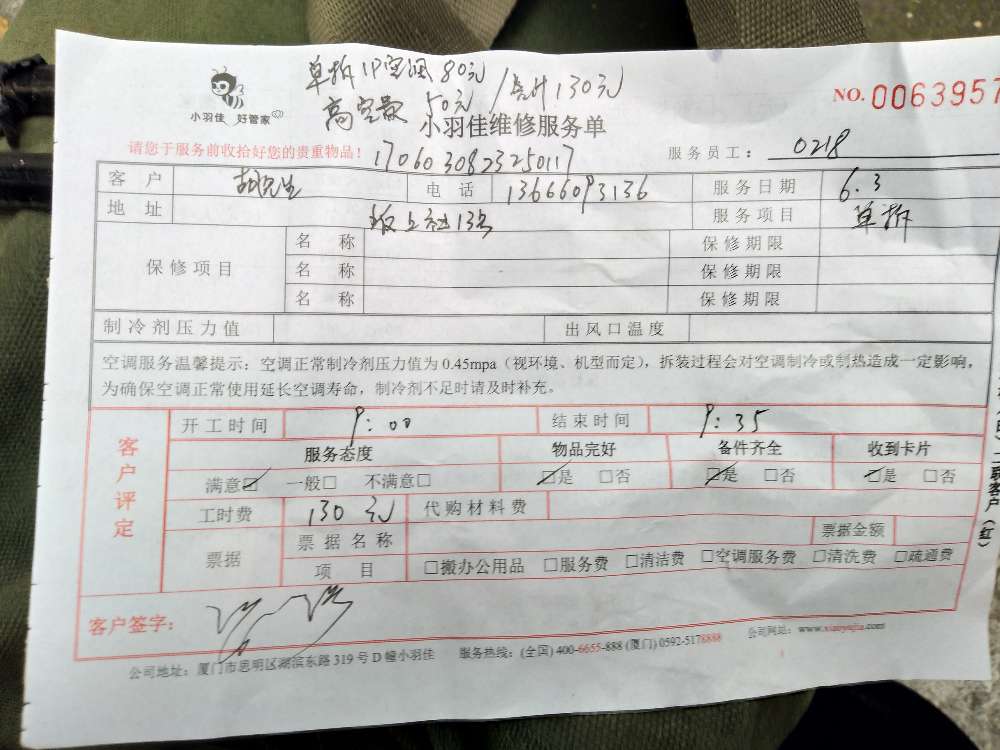 单拆1P空调80元
高空费 50元 /合计130元
小羽佳 好管家
NO. 0063957
小羽佳维修服务单
请您于服务前收拾好您的贵重物品!
1706030823250117
服务员工: 0218
客户 胡先生 电话 13666093136 服务日期 6.3
地址 坂上社13号 服务项目 单拆
保修项目
名称 保修期限
名称 保修期限
名称 保修期限
制冷剂压力值 出风口温度
空调服务温馨提示:空调正常制冷剂压力值为 0.45mpa(视环境、机型而定),拆装过程会对空调制冷或制热造成一定影响,
为确保空调正常使用延长空调寿命,制冷剂不足时请及时补充。
客户评定
开工时间 9:00 结束时间 9:35
服务态度 物品完好 备件齐全 收到卡片
满意☑ 一般□ 不满意□ ☑是 □否 ☑是 □否 ☑是 □否
工时费 130元 代购材料费
票据 票据名称 票据金额
项目 □搬办公用品 □服务费 □清洁费 □空调服务费 □清洗费 □疏通费
客户签字:
公司地址:厦门市思明区湖滨东路 319 号 D 幢小羽佳 服务热线:(全国) 400-6655-888 (厦门) 0592-5178888 公司网站:www.xiaoyujia.com
二联客户(红)